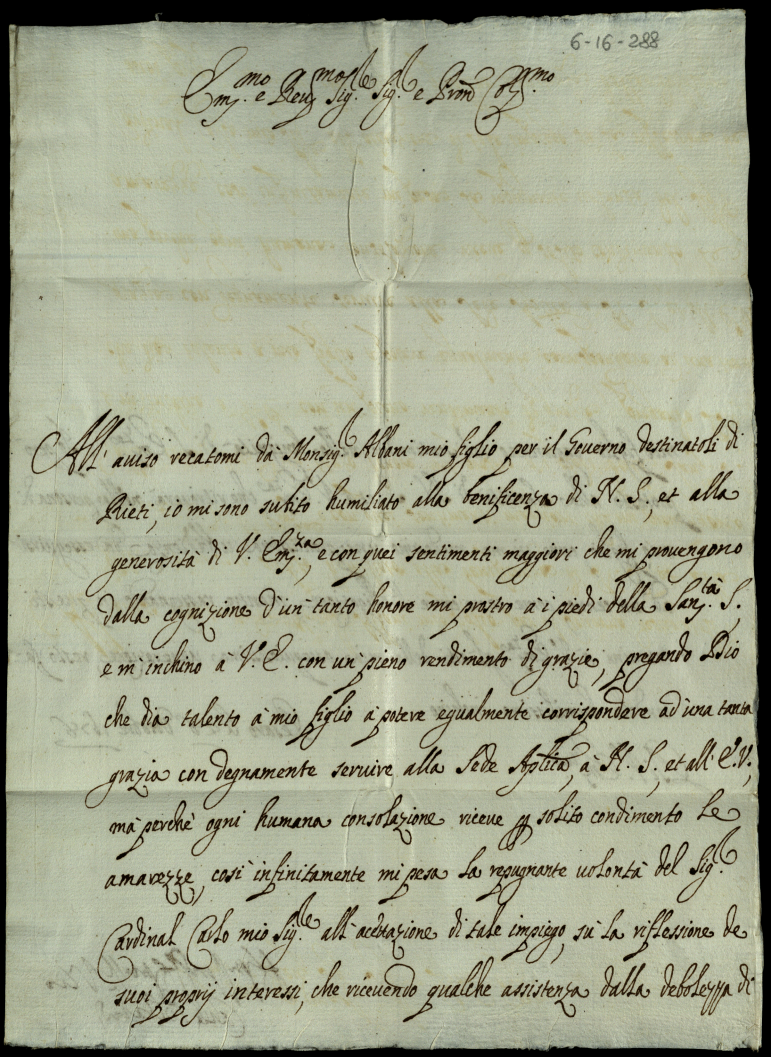 6-16-288
Em.mo e Rev.mo Sig.le Sig.l e Pron Col.mo
All' aviso recatomi dà Monsig.l Albani mio figlio per il Governo destinatoli di
Rieti, io mi sono subito humiliato alla benificenza di N. S., et alla
generosità di V. Em.za, e con quei sentimenti maggiori che mi provengono
dalla cognizione d'un tanto honore mi prostro à i piedi della San.tà S.,
e m'inchino à V. E. con un pieno rendimento di grazie, pregando Dio
che dia talento à mio figlio à potere egualmente corrispondere ad una tanta
grazia con degnamente servire alla Sede Aplica, à N. S., et all' E. V.,
mà perche ogni humana consolazione riceve p solito condimento le
amarezze, così infinitamente mi pesa la repugnante volontà del Sig.l
Cardinal Carlo mio Sig.le all' acettazione di tale impiego, sù la riflessione de
suoi proprij interessi, che ricevendo qualche assistenza dalla debolezza di